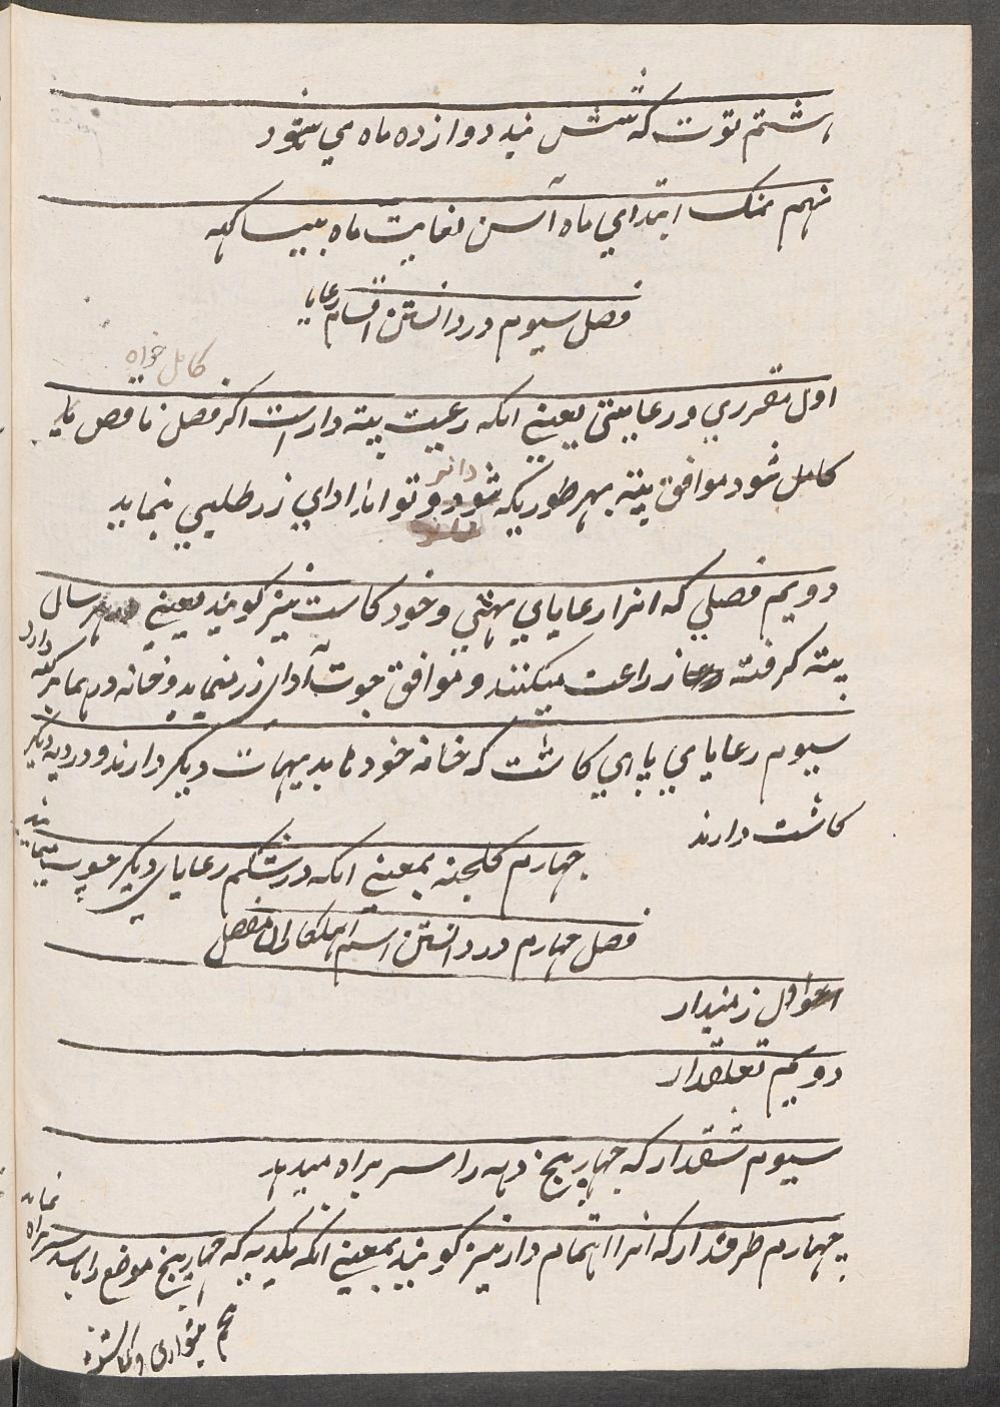 هشتم توت که شش نیه دوازده ماه می شود
نهم نمک ابتدای ماه آسن لغایت ماه بیساکهه
فصل سیوم در دانستن اقسام رعایا
کامل خواه
اول مقرری و رعایتی یعنی انکه رعیت پته دار است اکر فصل ناقص یا
کامل شود موافق پته بهر طوریکه داند و تواند ادای زر طلبی نماید
دویم فصلی که انرا رعایای پهتی و خود کاست نیز کویند یعنی هر سال
پته کرفته زراعت میکنند و موافق جوت آدای زر نماید و خانه در همانجا دارد
سیوم رعایای پاهی کاشت که خانه خود ها بدیهات دیکر دارند و در دیه دیکر
کاشت دارند
چهارم کلجنه بمعنی انکه در شکم رعایای دیکر میباشند
فصل چهارم در دانستن اسم اهلکاران مفصل
اول زمیندار
دویم تعلقدار
سیوم شقدار که چهار پنج دهه را سربراه میدهد
چهارم طرفدار که انرا اهتمام دار نیز کویند بمعنی انکه که چهار پنج موضع را سربراه نماید
پنجم پتواری